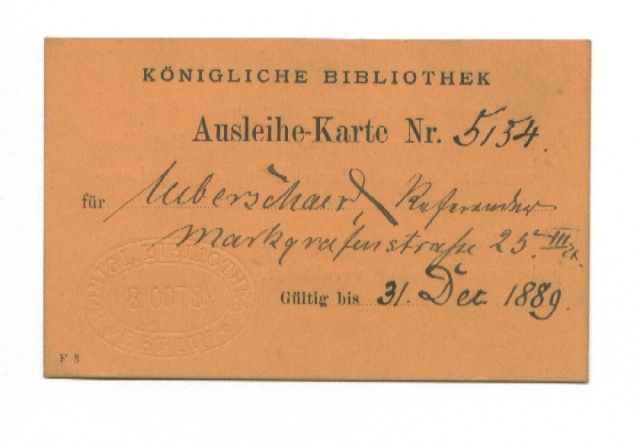 KÖNIGLICHE BIBLIOTHEK
Ausleihe-Karte Nr. 5154.
für Ueberschaer, Referendar
Markgrafenstraße 25. III
KÖNIGL. BIBLIOTHEK
BERLIN
Gültig bis 31. Dec. 1889.
F 3